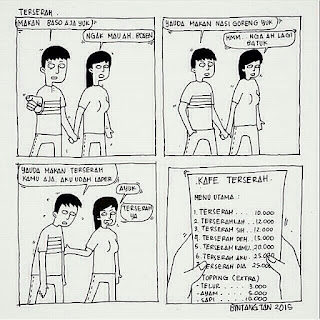 TERSERAH.
MAKAN BASO AJA YUK!
NGAK MAU AH. BOSEN
YAUDA MAKAN NASI GORENG YUK
HMM.. NGA AH LAGI
BATUK
YAUDA MAKAN TERSERAH
KAMU AJA. AKU UDAH LAPER
AYUK
TERSERAH
YA
KAFE TERSERAH.
MENU UTAMA:
1. TERSERAH.... 10.000
2. TERSERAHLAH.. 12.000
3. TERSERAH SIH.. 12.000
4. TERSERAH DEH.. 15.000
5. TERSERAH KAMU. 20.000
6. TERSERAH AKU. 25.000
7. TERSERAH DIA. 25.000
TOPPING (EXTRA)
- TELUR... 3.000
- AYAM... 5.000
- SAPI... 10.000
BINTANG TAN 2015